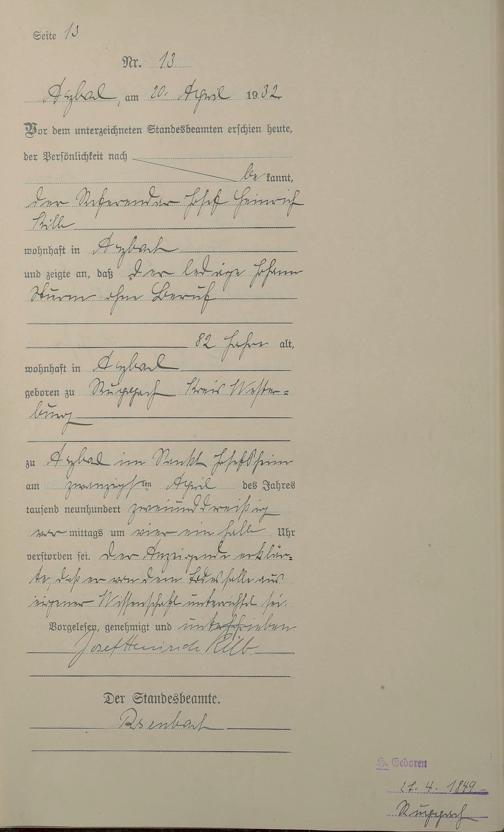 Seite 13
Nr. 13
Arzbach, am 20. April 1932
Vor dem unterzeichneten Standesbeamten erschien heute,
der Persönlichkeit nach
bekannt,
der Referendar Josef Heinrich
Kilb
wohnhaft in Arzbach
und zeigte an, daß der ledige Johann
Sturm ohne Beruf
82 Jahre alt,
wohnhaft in Arzbach
geboren zu Ruppach Kreis Wester=
burg
zu Arzbach im Sankt Josefsheim
am zwanzigsten April des Jahres
tausend neunhundert zweiunddreißig
vormittags um vier ein halb Uhr
verstorben sei. Der Anzeigende erklär=
te, daß er von dem Todesfalle aus
eigener Wissenschaft unterrichtet sei.
Vorgelesen, genehmigt und unterschrieben
Josef Heinrich Kilb
Der Standesbeamte.
H. Geboren
17. 4. 1849
Ruppach